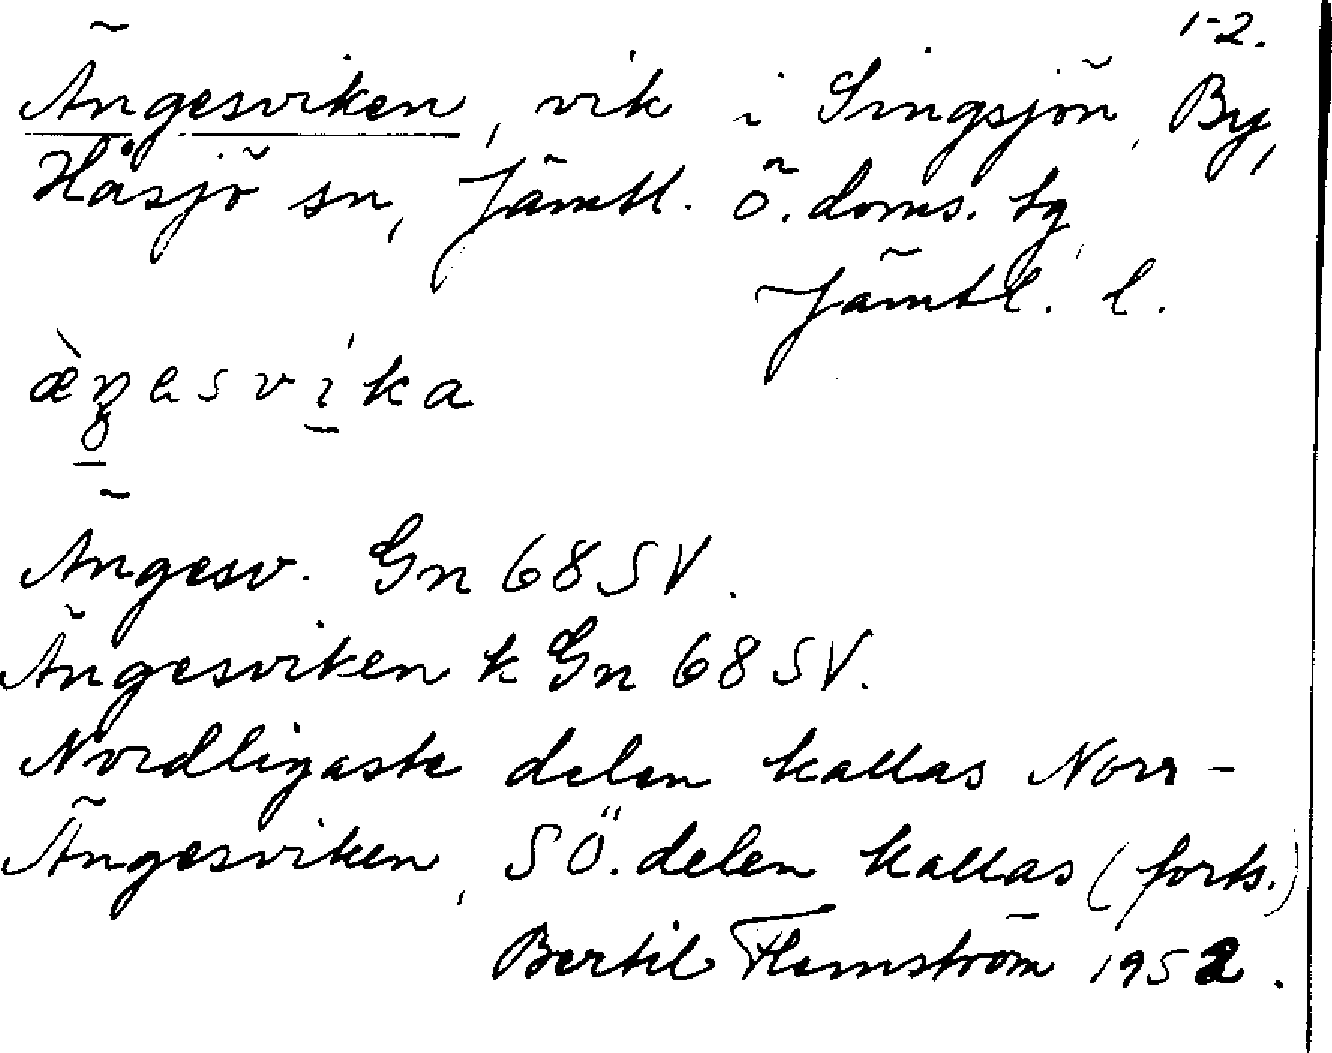 1-2.
Ängesviken, vik i Singsjön, By,
Håsjö sn, Jämtl. ö. doms. tg,
Jämtl. l.
Ängesv. Gn 68 SV.
Ängesviken k Gn 68 SV.
Nordligaste delen kallas Norr-
Ängesviken, SÖ. delen kallas (forts.)
Bertil Flemström 1952.